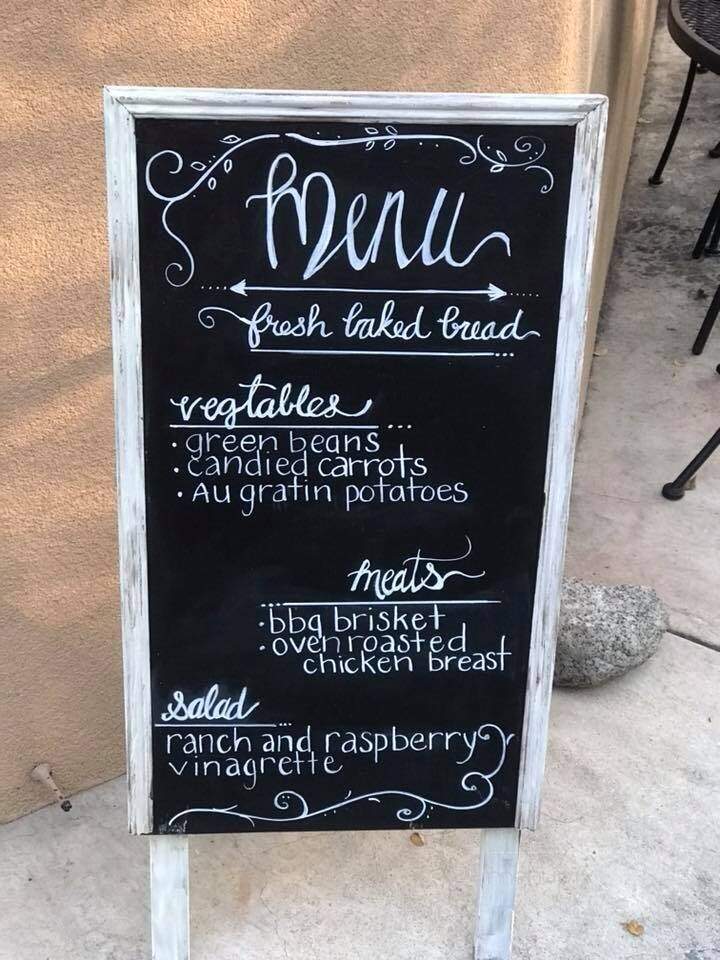 Menu
fresh baked bread
vegtables
· green beans
· candied carrots
· Au gratin potatoes
meats
· bbq brisket
· oven roasted
chicken breast
salad
ranch and raspberry
vinagrette